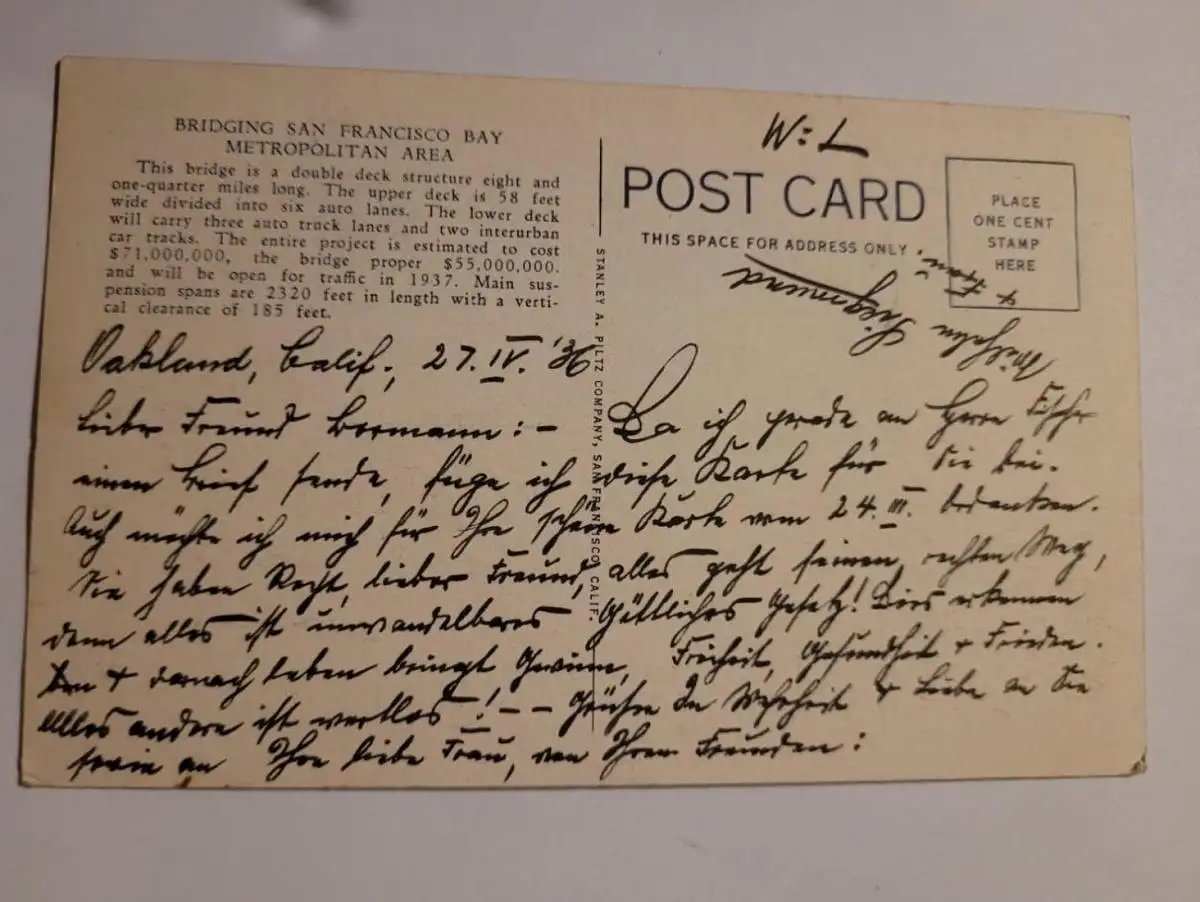 BRIDGING SAN FRANCISCO BAY
METROPOLITAN AREA
This bridge is a double deck structure eight and
one-quarter miles long. The upper deck is 58 feet
wide divided into six auto lanes. The lower deck
will carry three auto truck lanes and two interurban
car tracks. The entire project is estimated to cost
$71,000,000, the bridge proper $55,000,000.
and will be open for traffic in 1937. Main sus-
pension spans are 2320 feet in length with a verti-
cal clearance of 185 feet.
W=L
POST CARD
THIS SPACE FOR ADDRESS ONLY
PLACE
ONE CENT
STAMP
HERE
STANLEY A. PILTZ COMPANY, SAN FRANCISCO, CALIF.
Oakland, Calif., 27. IV. '36
Lieber Freund Bormann: – Da ich grade an Herrn Fischer
einen Brief sende, füge ich diese Karte für Sie bei.
Auch möchte ich mich für Ihre schöne Karte vom 24. III. bedanken.
Sie haben Recht, lieber Freund, alles geht seinen rechten Weg,
denn alles ist unwandelbares Göttliches Gesetz! Dies erkennen
+ darnach leben bringt Gewinn, Freiheit, Gesundheit + Frieden.
Alles andere ist wertlos! – – Grüße In Wahrheit + Liebe an Sie
sowie an Ihre liebe Frau, von Ihren Freunden:
Wilhelm Siegmund
+ Frau.